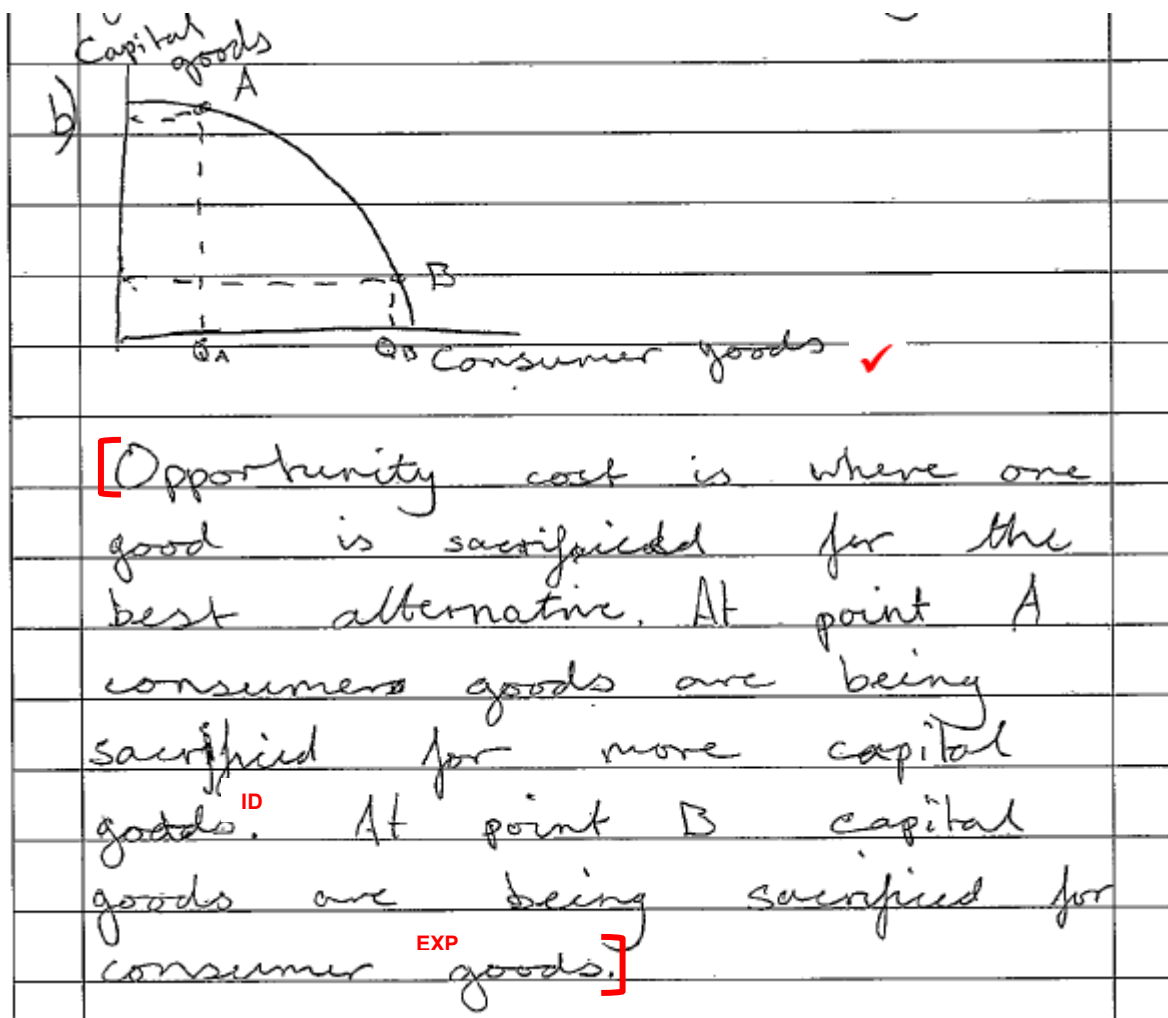 Capital
goods
b)
A
B
QA
QB
Consumer goods ✓
[Opportunity cost is where one
good is sacrificed for the
best alternative. At point A
consumers goods are being
sacrificed for more capital
goods. ID At point B capital
goods are being sacrificed for
EXP
consumer goods.]